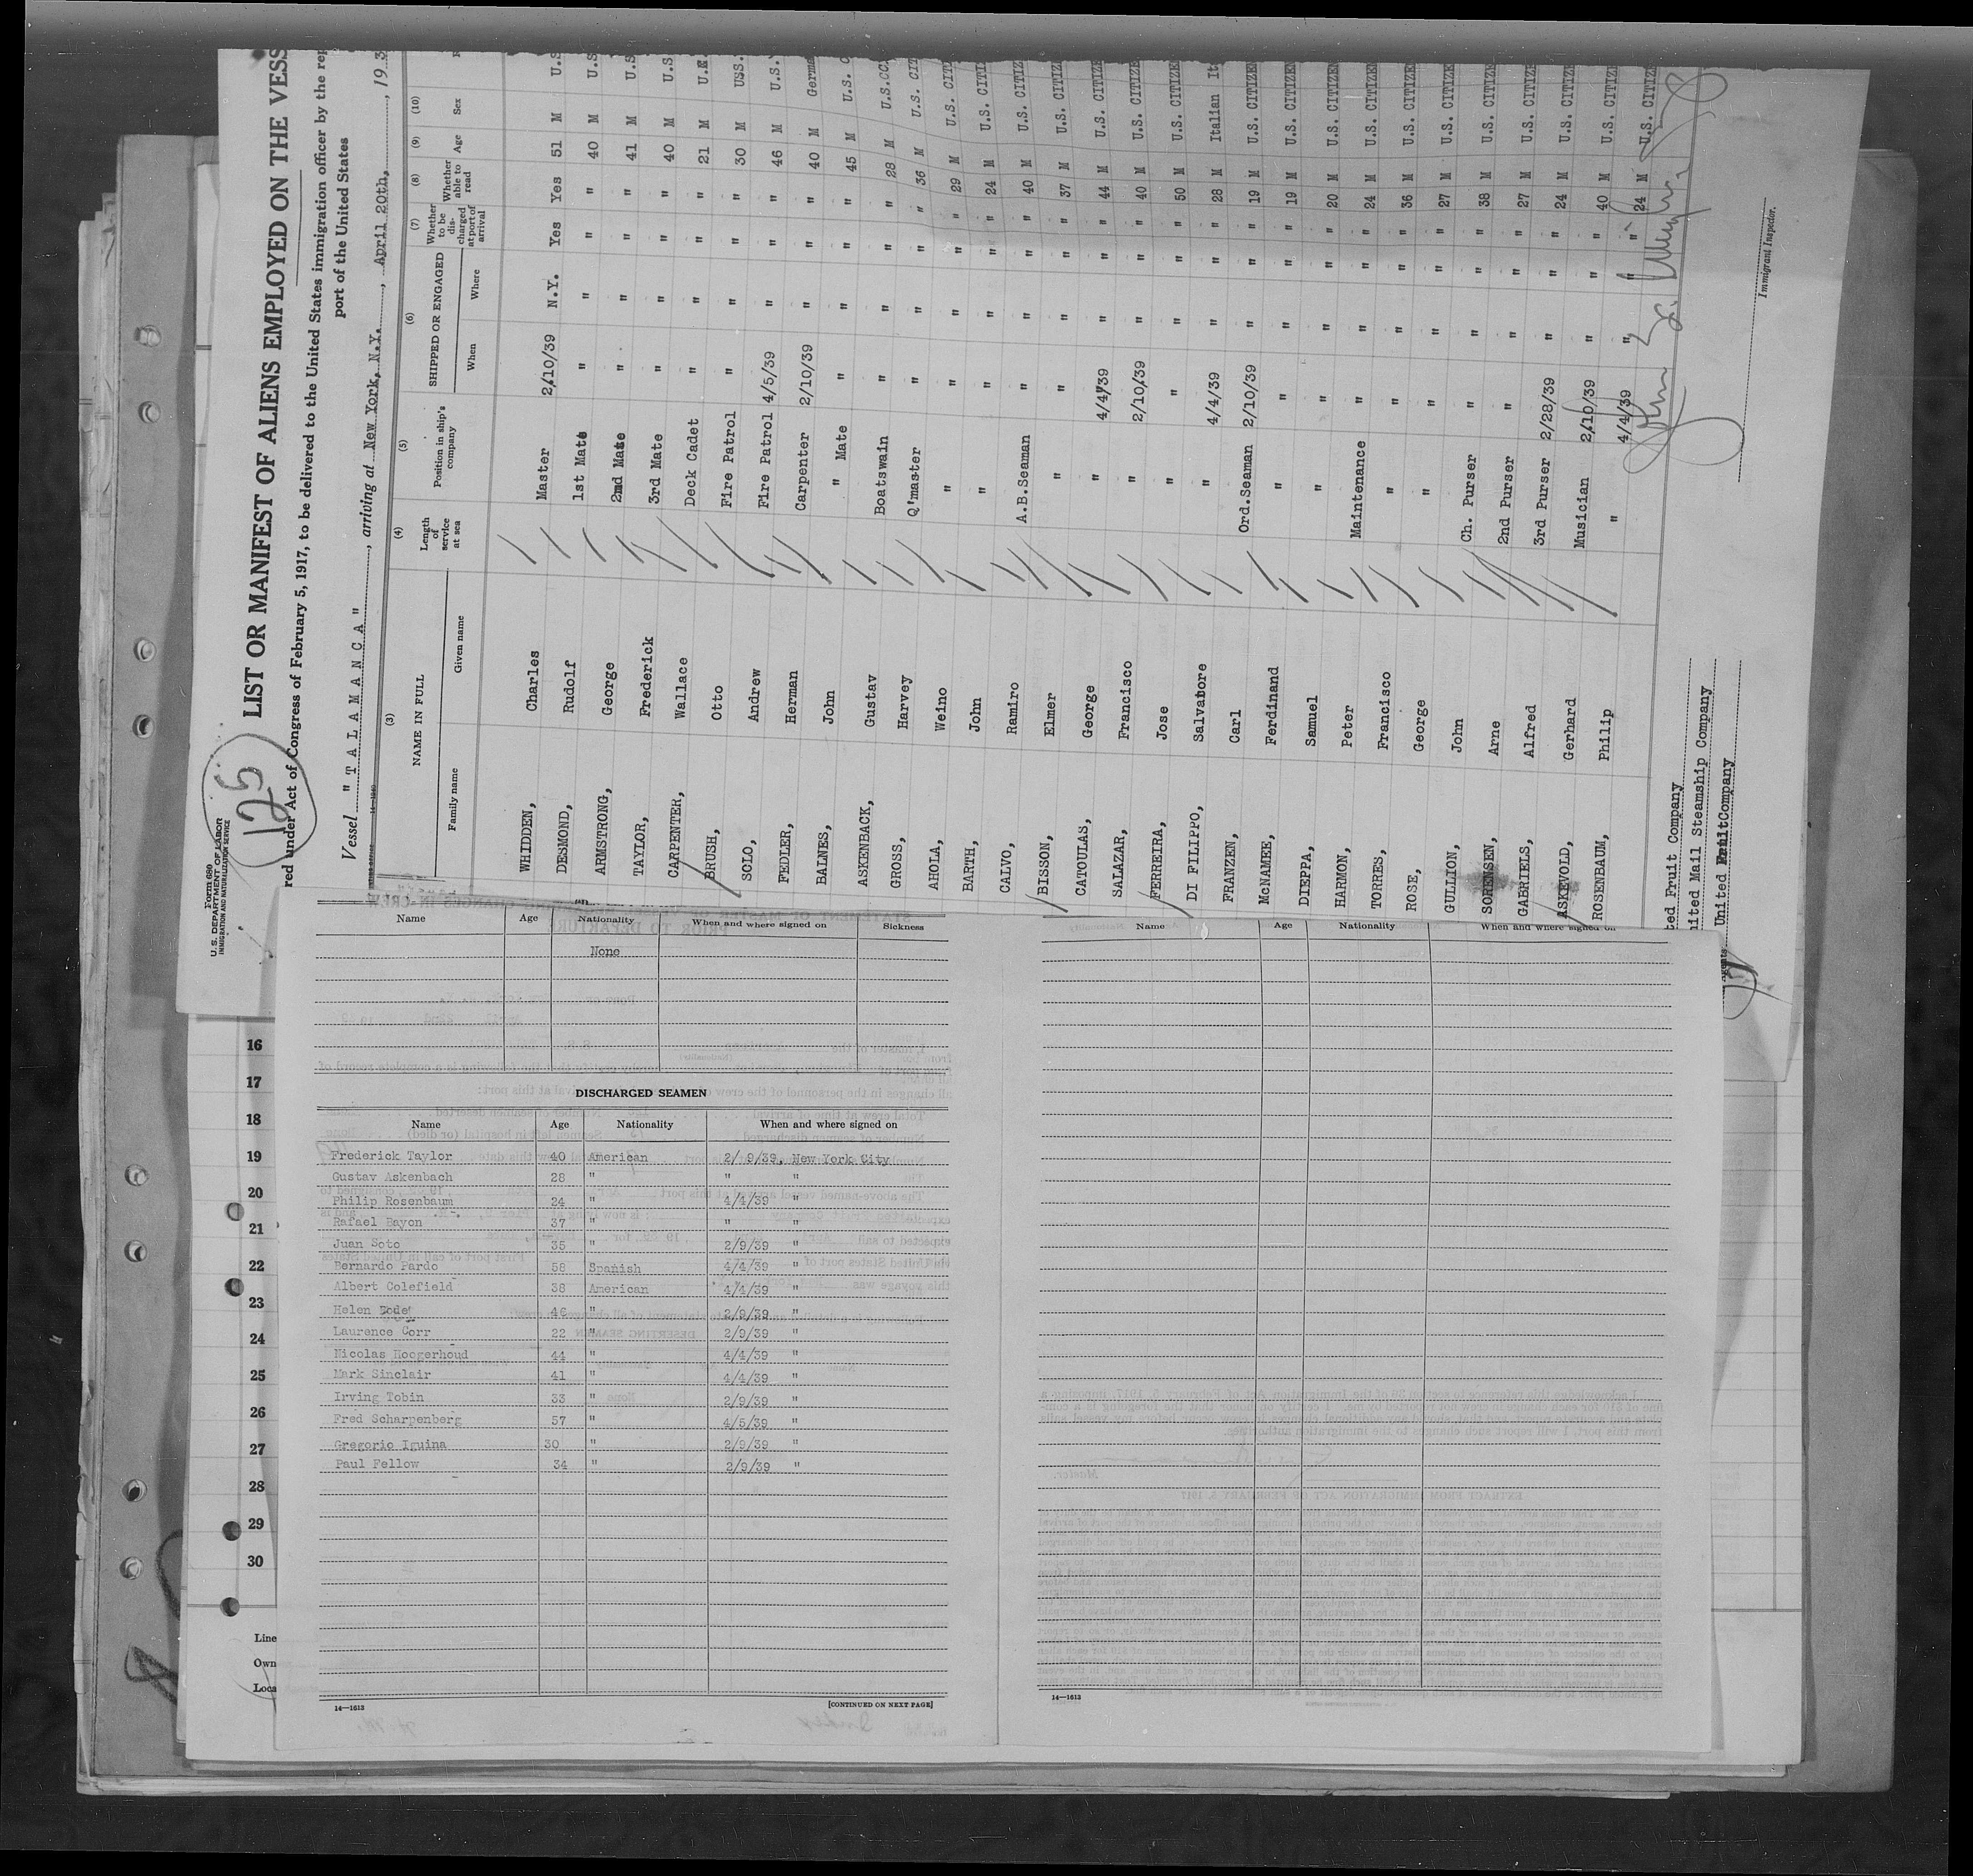 Form 680
U. S. DEPARTMENT OF LABOR
IMMIGRATION AND NATURALIZATION SERVICE
125
LIST OR MANIFEST OF ALIENS EMPLOYED ON THE VESS
red under Act of Congress of February 5, 1917, to be delivered to the United States immigration officer by the rep
port of the United States
Vessel " T A L A M A N C A " , arriving at New York, N.Y. , April 20th, , 193
(3) (4) (5) (6) (7) (8) (9) (10)
NAME IN FULL Length of service at sea Position in ship's company SHIPPED OR ENGAGED Whether to be discharged at port of arrival Whether able to read Age Sex
Family name Given name When Where
WHIDDEN, Charles Master 2/10/39 N.Y. Yes Yes 51 M U.S
DESMOND, Rudolf 1st Mate " " " " 40 M U.S
ARMSTRONG, George 2nd Mate " " " " 41 M U.S
TAYLOR, Frederick 3rd Mate " " " " 40 M U.S
CARPENTER, Wallace Deck Cadet " " " " 21 M U.S.
BRUSH, Otto Fire Patrol " " " " 30 M USS.
SCLO, Andrew Fire Patrol 4/5/39 " " " 46 M U.S.
FEDLER, Herman Carpenter 2/10/39 " " " 40 M Germa
BALNES, John " Mate " " " " 45 M U.S. C
ASKENBACK, Gustav Boatswain " " " " 28 M U.S.CC
GROSS, Harvey Q'master " " " " 36 M U.S. CIT
AHOLA, Weino " " " " " 29 M U.S. CIT
BARTH, John " " " " " 24 M U.S. CITI
CALVO, Ramiro A.B.Seaman " " " " 40 M U.S. CITIZ
BISSON, Elmer " " " " " 37 M U.S. CITIZ
CATOULAS, George " 4/4/39 " " " 44 M U.S. CITIZE
SALAZAR, Francisco " 2/10/39 " " " 40 M U.S. CITIZE
FERREIRA, Jose " " " " " 50 M U.S. CITIZE
DI FILIPPO, Salvatore " 4/4/39 " " " 28 M Italian It
FRANZEN, Carl Ord.Seaman 2/10/39 " " " 19 M U.S. CITIZEN
McNAMEE, Ferdinand " " " " " 19 M U.S. CITIZE
DIEPPA, Samuel " " " " " 20 M U.S. CITIZEN
HARMON, Peter Maintenance " " " " 24 M U.S. CITIZEN
TORRES, Francisco " " " " " 36 M U.S. CITIZE
ROSE, George " " " " " 27 M U.S. CITIZE
GULLION, John Ch. Purser " " " " 38 M U.S. CITIZE
SORENSEN, Arne 2nd Purser " " " " 27 M U.S. CITIZE
GABRIELS, Alfred 3rd Purser 2/28/39 " " " 24 M U.S. CITIZE
ASKEVOLD, Gerhard Musician 2/10/39 " " " 40 M U.S. CITIZ
ROSENBAUM, Philip " 4/4/39 " " " 24 M U.S. CITIZ
Immigrant Inspector.
ted Fruit Company
nited Mail Steamship Company
United Fruit Company
Name Age Nationality When and where signed on Sickness
None
DISCHARGED SEAMEN
Name Age Nationality When and where signed on
Frederick Taylor 40 American 2/ 9/39, New York City
Gustav Askenbach 28 " " "
Philip Rosenbaum 24 " 4/4/39 "
Rafael Bayon 37 " " "
Juan Soto 35 " 2/9/39 "
Bernardo Pardo 58 Spanish 4/4/39 "
Albert Colefield 38 American 4/4/39 "
Helen 46 " 2/9/39 "
Laurence Corr 22 " 2/9/39 "
Nicolas Hoogerhoud 44 " 4/4/39 "
Mark Sinclair 41 " 4/4/39 "
Irving Tobin 33 " 2/9/39 "
Fred Scharpenberg 57 " 4/5/39 "
Gregorio Iguina 30 " 2/9/39 "
Paul Fellow 34 " 2/9/39 "
14—1613 [CONTINUED ON NEXT PAGE]
Name Age Nationality When and where signed on
14—1613
16
17
18
19
20
21
22
23
24
25
26
27
28
29
30
Line
Own
Loca